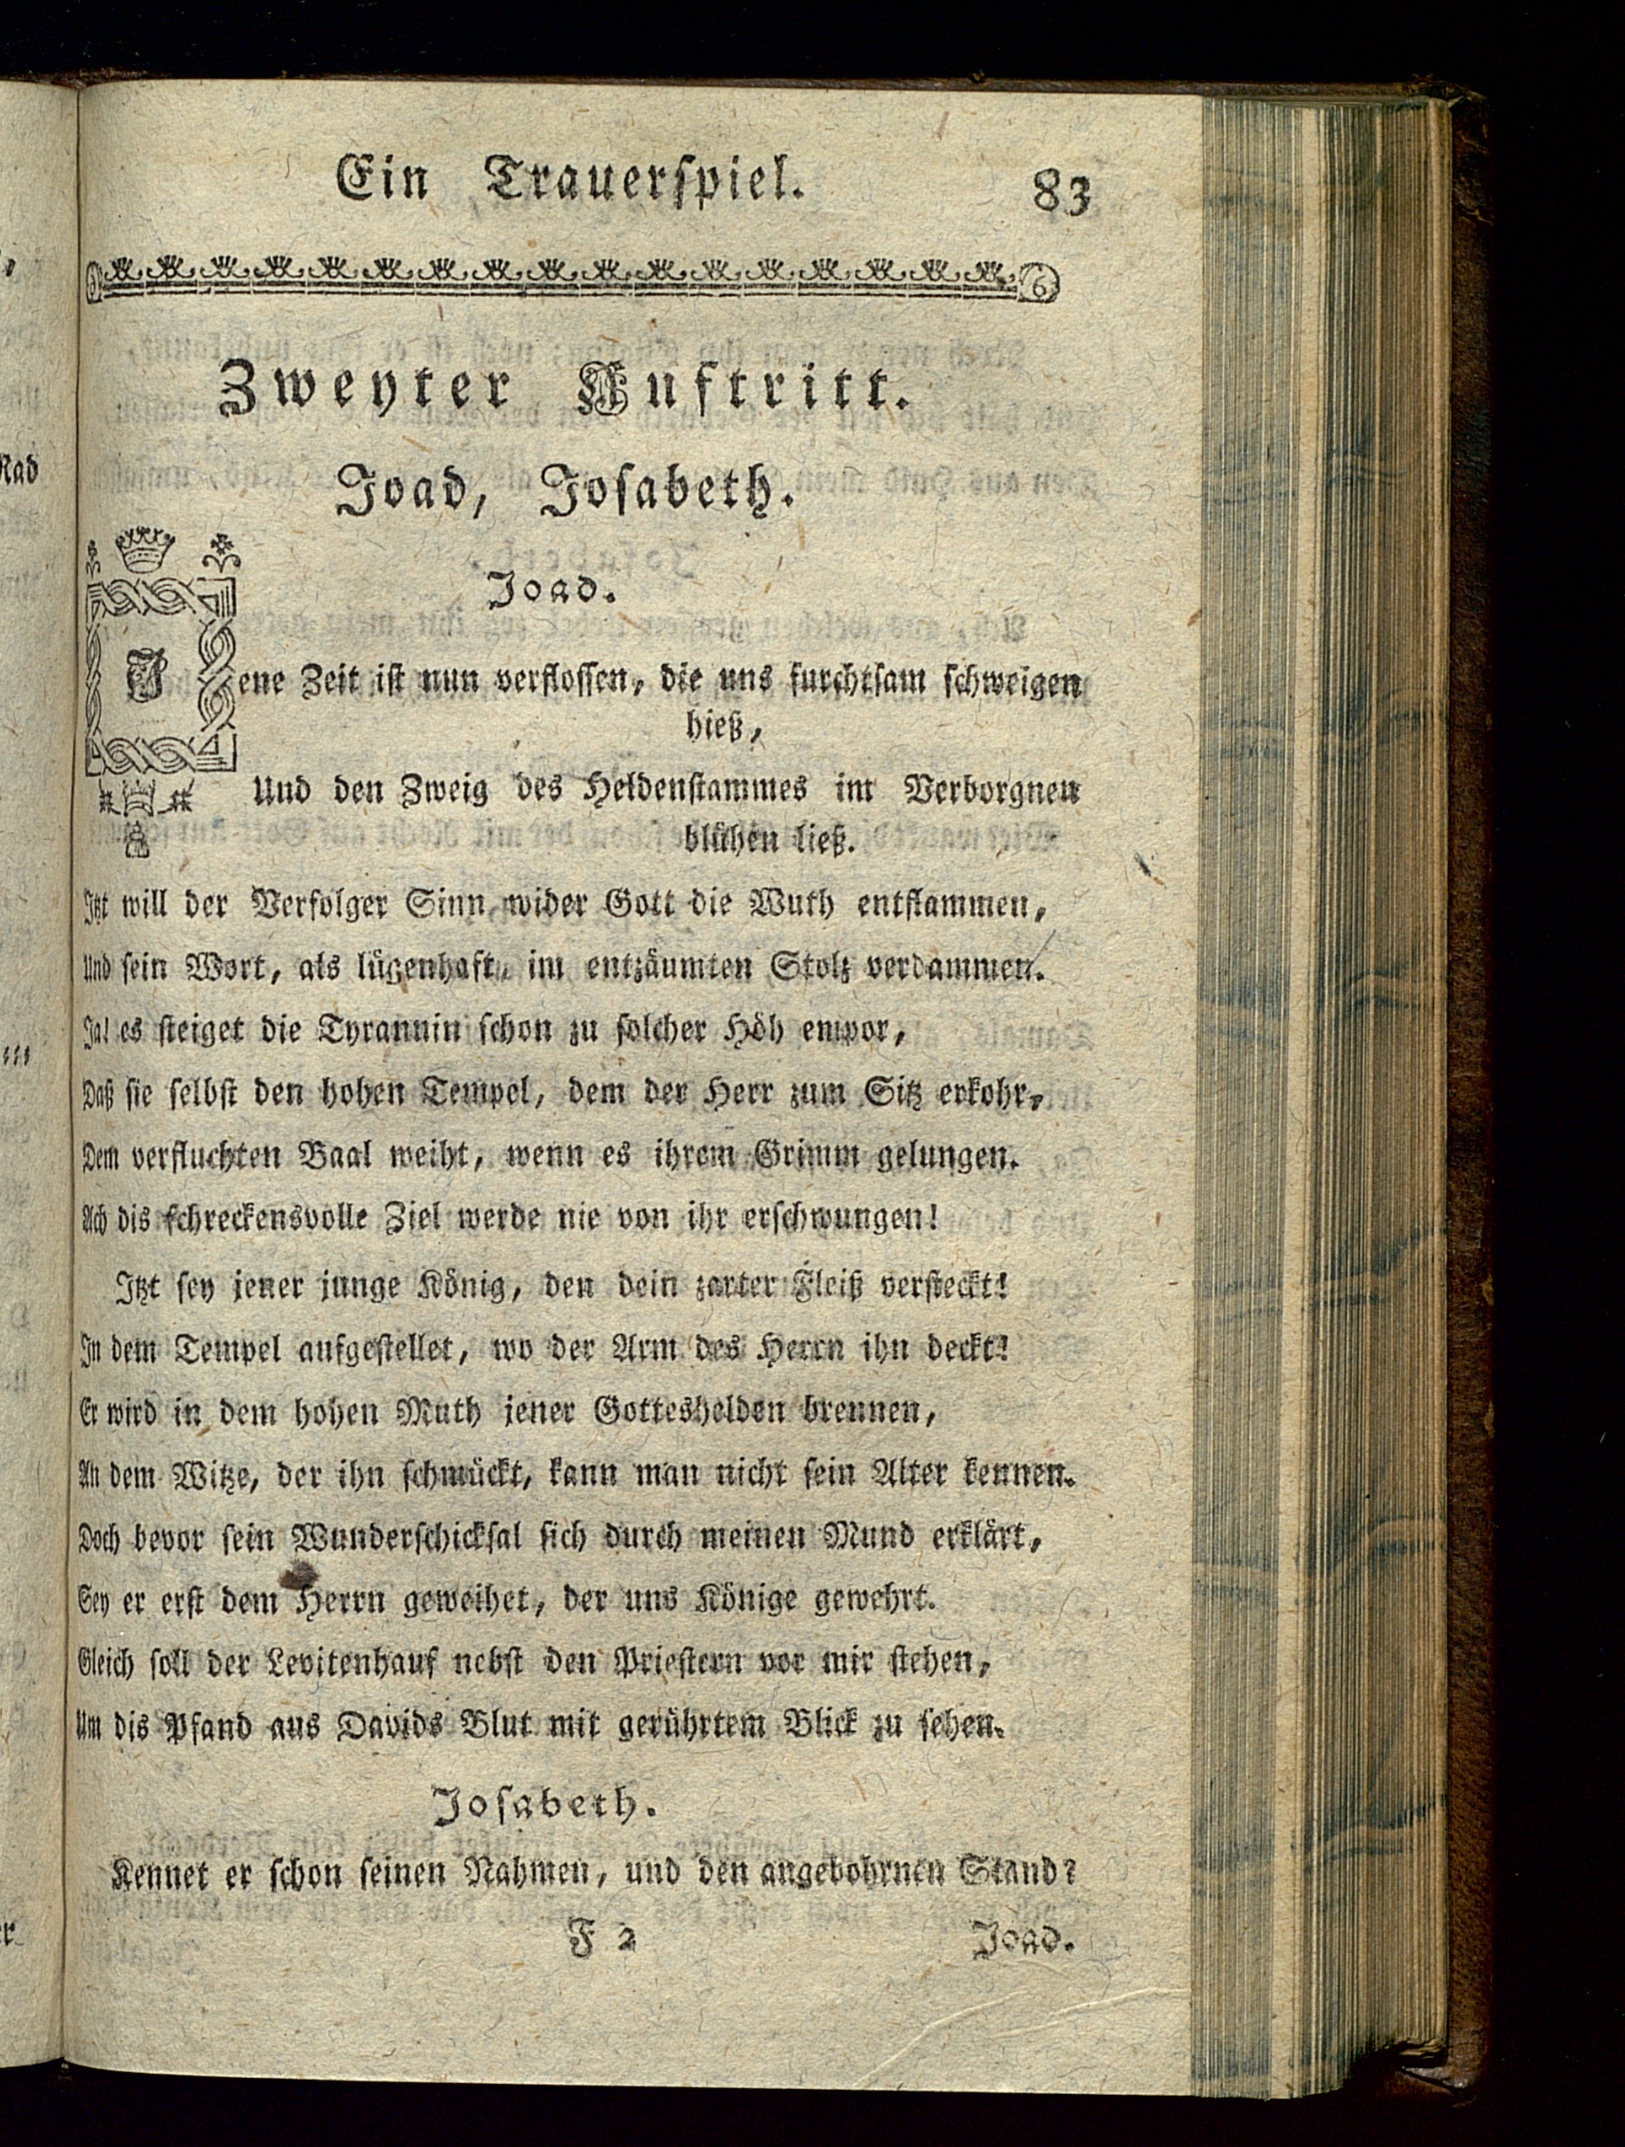 Ein Trauerſpiel. 83
Zweyter Auftritt.
Joad, Joſabeth.
Joad.
Jene Zeit iſt nun verfloſſen, die uns furchtſam ſchweigen
hieß,
Und den Zweig des Heldenſtammes im Verborgnen
blühen ließ.
Itzt will der Verfolger Sinn wider Gott die Wuth entflammen,
Und ſein Wort, als lügenhaft, im entzäumten Stolz verdammen.
Ja! es ſteiget die Tyrannin ſchon zu ſolcher Höh empor,
Daß ſie ſelbſt den hohen Tempel, dem der Herr zum Sitz erkohr,
Dem verfluchten Baal weiht, wenn es ihrem Grimm gelungen.
Ach dis ſchreckensvolle Ziel werde nie von ihr erſchwungen!
Itzt ſey jener junge König, den dein zarter Fleiß verſteckt!
In dem Tempel aufgeſtellet, wo der Arm des Herrn ihn deckt!
Er wird in dem hohen Muth jener Gotteshelden brennen,
An dem Witze, der ihn ſchmückt, kann man nicht ſein Alter kennen.
Doch bevor ſein Wunderſchickſal ſich durch meinen Mund erklärt,
Sey er erſt dem Herrn geweihet, der uns Könige gewehrt.
Gleich ſoll der Levitenhauf nebſt den Prieſtern vor mir ſtehen,
Um dis Pfand aus Davids Blut mit gerührtem Blick zu ſehen.
Joſabeth.
Kennet er ſchon ſeinen Nahmen, und den angebohrnen Stand?
F 2 Joad.